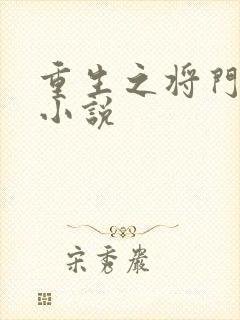 重生之将門
小説
宋秀嚴